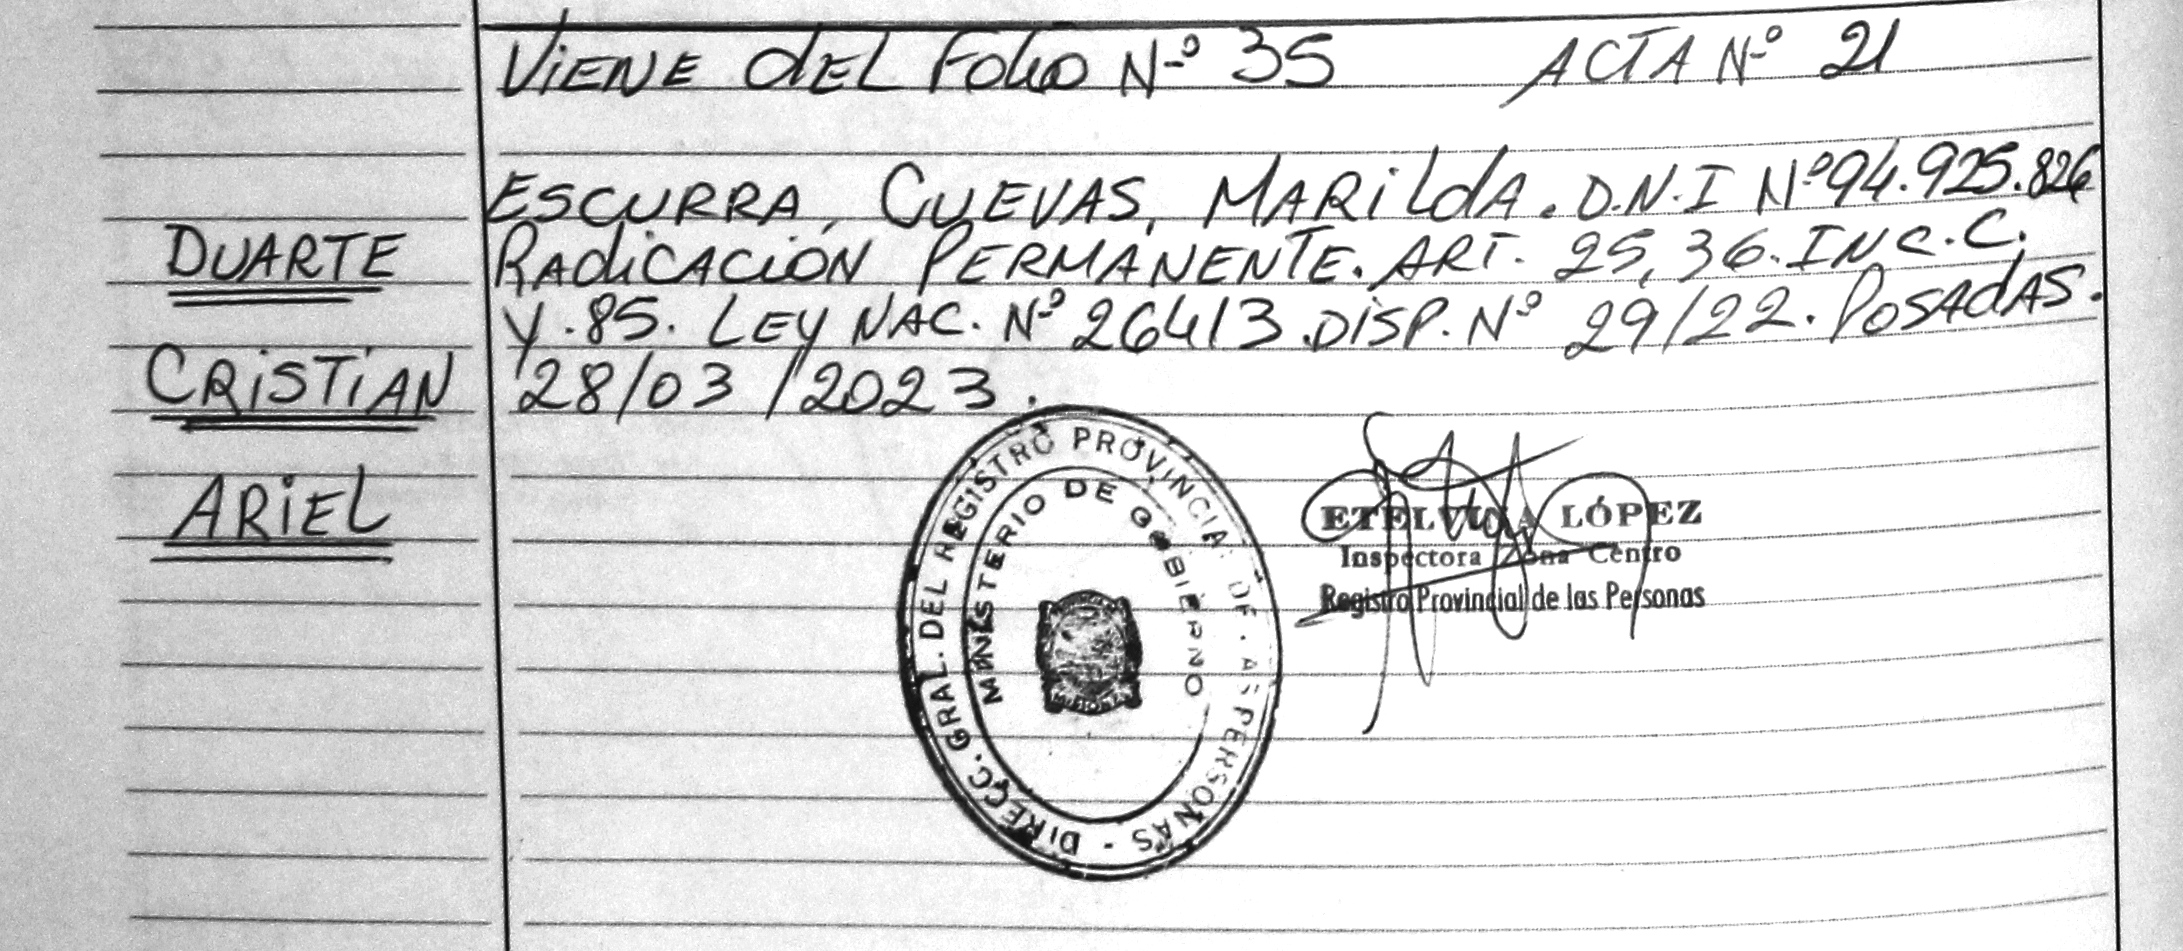 ViENE dEL FOLiO Nº 35 ACTA Nº 21
DUARTE
CRiSTiAN
ARiEL
ESCURRA, CUEVAS, MARiLdA. D.N.I Nº 94.925.826
RAdiCACiÓN PERMANENTE. ART. 25, 36. INC. C.
Y. 85. LEY NAC. Nº 26413. DiSP. Nº 29/22. POSAdAS.
28/03/2023.
DIRECC. GRAL. DEL REGISTRO PROVINCIAL DE LAS PERSONAS -
MINISTERIO DE GOBIERNO
MISIONES
ETELVINA LÓPEZ
Inspectora Zona Centro
Registro Provincial de las Personas